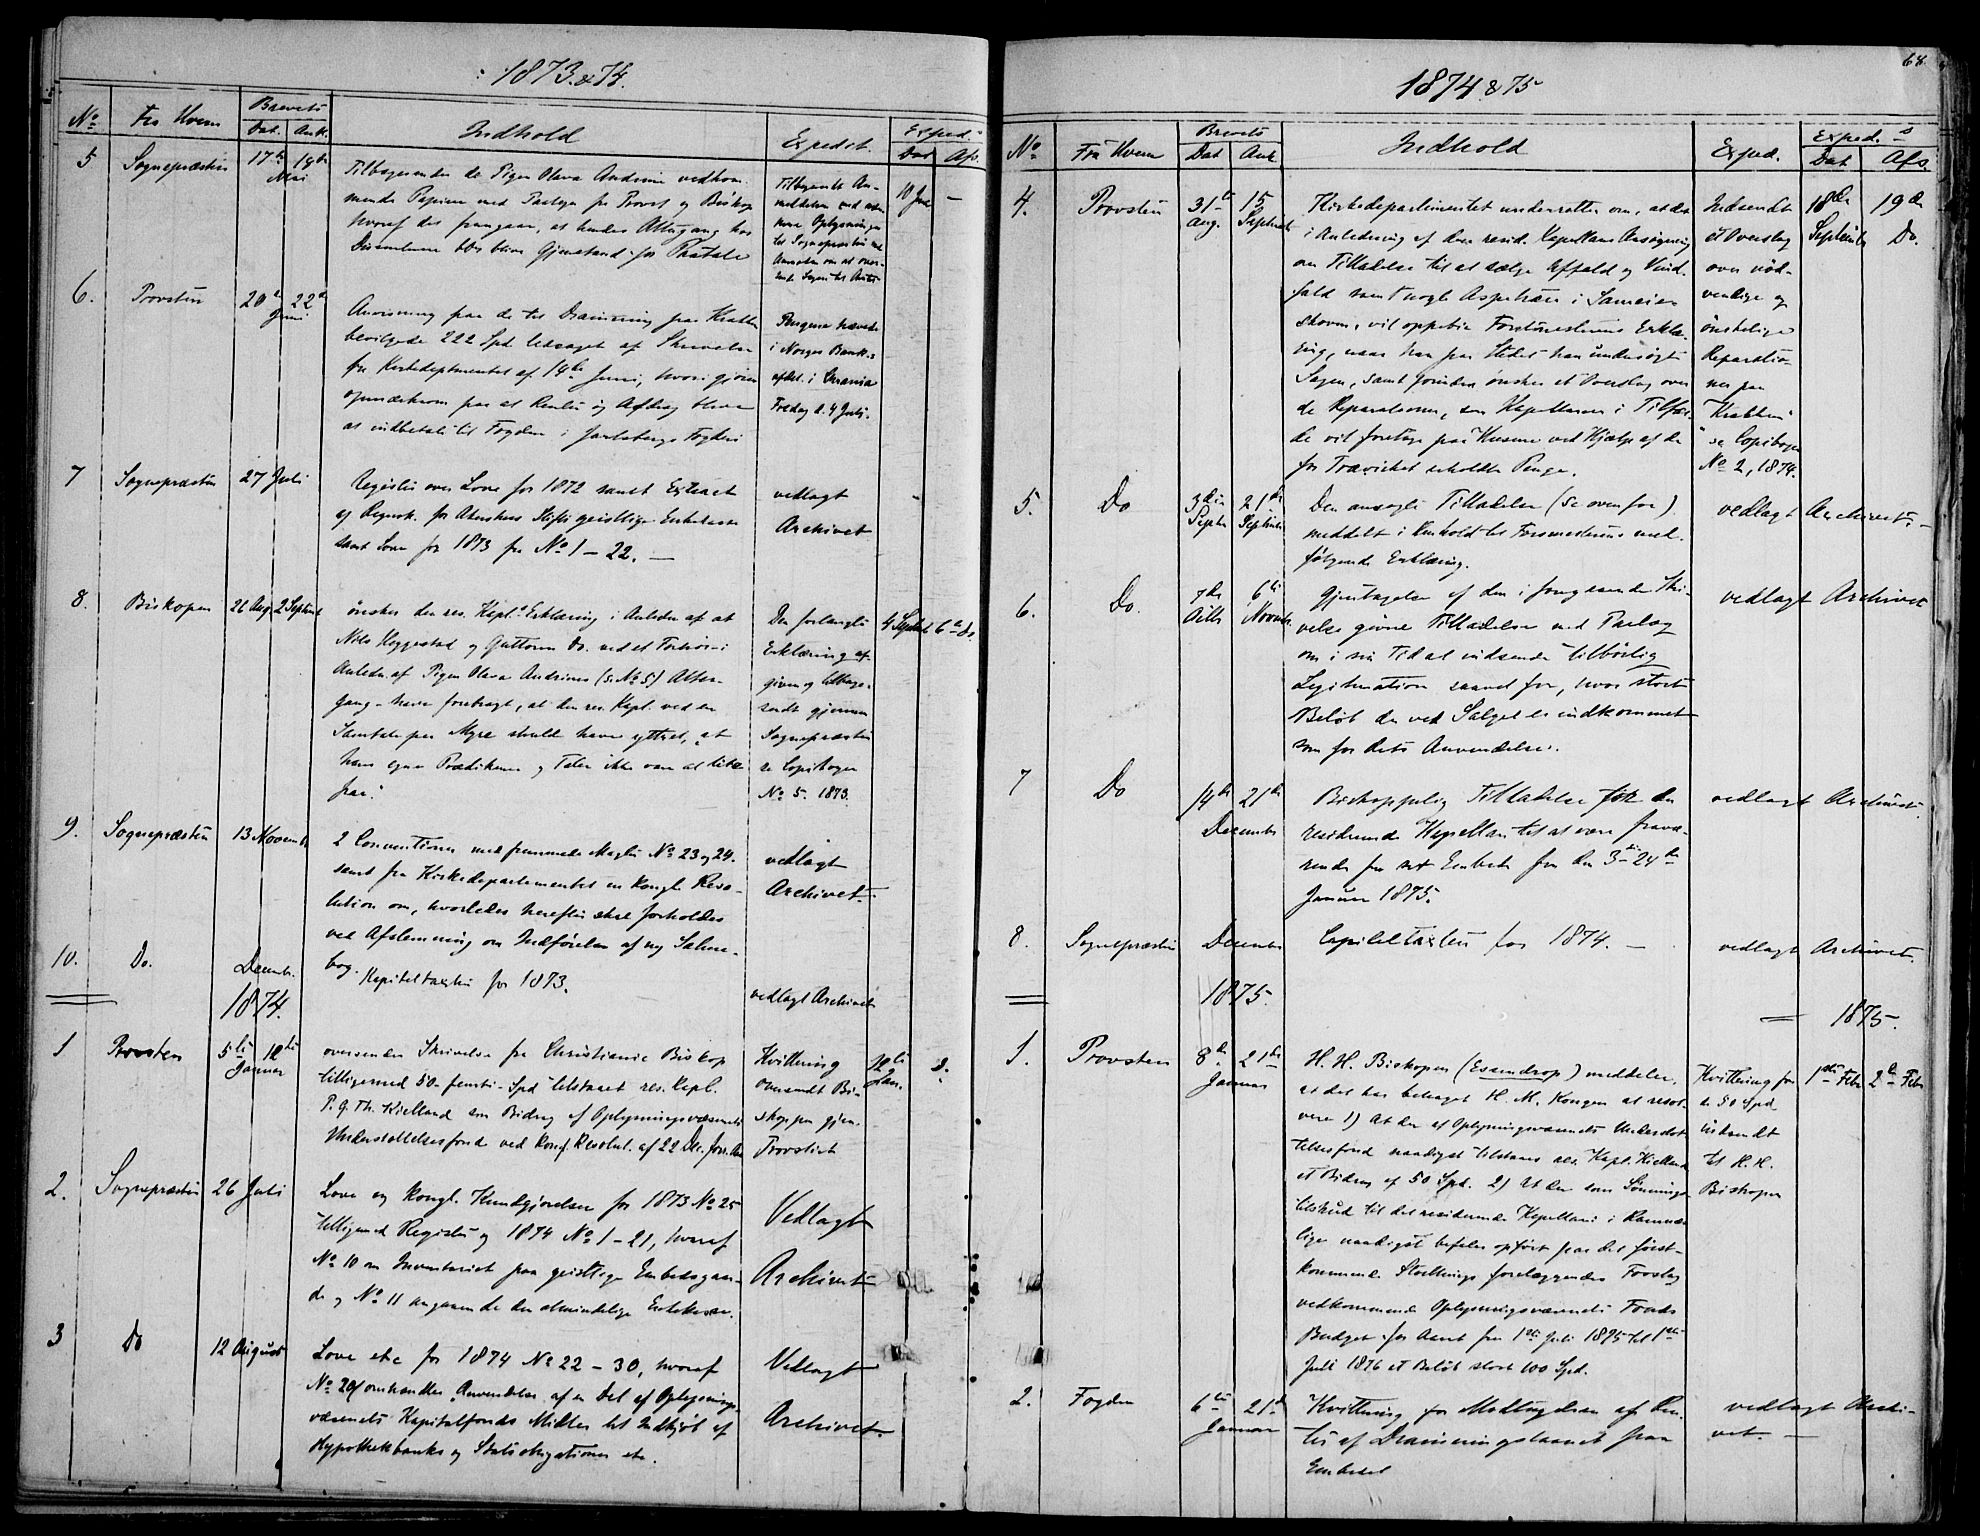 1873 & 74.
No
Fra Hvem
Brevets
Dat. Ank.
Indhold
Expedit.
Exped.s
Dat Afs.
5
Sognepræsten
17de 18de
Mai
Tilbagesender de Pigen Olava Andrine vedkom-
mende Papirer med Paategn. fra Provst og Biskop
hvoraf det fremgaar, at hendes Altergang hos
Dissenterne ikke bliver Gjenstand for Paatale
Tilbagesendt An-
meldelsen med
nere Oplysninger
til Sognepræsten med
Anmodn. om at over-
sende Sagen til
10 Juni
—
6.
Provsten
20de 22de
Juni
Anvisning paa de til Drainering paa Krabben
bevilgede 222 Spd. ledsaget af Skrivelse
fra Kirkedeptementet af 14de Juni, hvori gjøres
opmærksom paa at Renter og Afdrag bliver
at indbetale til Fogden i Jarlsbergs Fogderi
Pengene hævede
i Norges Banks
afdel. i Drammen
Fredag d. 4 Juli.
7
Sognepræsten
27 Juli
Register over Love for 1872 samt Extract
af Regnsk. for Akershus Stifts geistlige Enkekasse
samt Love for 1873 fra No 1 – 22. —
vedlagt
Archivet
8.
Biskopen
26 Aug. 2 Septemb
ønsker den res. Kapl.s Erklæring i Anledn af at
Nils Heggestad og Guttorm Do. ved et Forhør i
Anledn. af Pigen Olava Andrines (se No 5) Alter-
gang – have forebragt, at den res. Kapl. ved en
Samtale paa Myre skulde have yttret, at
hans egne Prædikener og Taler ikke vare at lide
paa.
Den forlangte
Erklæring af-
given og tilbage-
sendt gjennem
Sognepræsten
se Copibogen
No 5. 1873.
4 Septemb 6te Do
9.
Sognepræsten
13 Novemb.
2 Conventioner med fremmede Magter No 23 og 24.
samt fra Kirkedepartementet en kongl. Reso-
lution om, hvorledes herefter skal forholdes
ved Afstemning om Indførelse af ny Salme-
bog.
vedlagt
Archivet.
10.
Do.
Decemb.
Kapiteltaxten for 1873.
vedlagt Archivet
1874.
1
Provsten
5te 12te
Januar
oversender Skrivelse fra Christiania Biskop
tilligemed 50 – femti – Spd tilstaaet res. Kapl.
P. G. Th. Kielland som Bidrag af Oplysningsvæsenets
Understøttelsesfond ved kongl. Resolut. af 22 Dec. forr. Aar
Kvittering
oversendt Bi-
skoppen gjen.
Provstiet
12te
Jan.
2.
Sognepræsten
26 Juli
Love og kongl. Kundgjørelser for 1873 No 25
tilligemed Register og 1874 No 1 – 21, hvoraf
No 10 om Inventariet paa geistlige Embedsgaar-
de og No 11 angaaende den almindelige Enkekasse.
Vedlagt
Archivet
3
Do
12 August
Love etc for 1874 No 22 – 30, hvoraf
No 29 omhandler Anvendelse af en Del af Oplysnings-
væsenets Kapitalfonds Midler til Indkjøb af
Hypothekbanks og Statsobligationer etc.
Vedlagt
Archivet.
68
1874 & 75
No
Fra Hvem
Brevets
Dat Ank
Indhold
Exped.
Exped.s
Dat Afs.
4.
Provsten
31te 15
Aug. Septemb
Kirkedepartementet underretter om, at det
i Anledning af den resid. Kapellans Ansøgning
om Tilladelse til at sælge Affald og Vind-
fald samt nogle Aspetræer i Sameie-
skoven, vil oppebie Forstmesterens Erklæ-
ring, naar han paa Stedet har undersøgt
Sagen, samt forinden ønsker et Overslag over
de Reparationer, som Kapellanen i Tilfæl-
de vil foretage paa Husene ved Hjælp af de
for Trævirket erholdte Penge.
Indsendt
et Overslag
over nød-
vendige og
ønskelige
Reparatio-
ner paa
"Krabben"
se Copibogen
No 2, 1874.
18de 19de
Septemb Do.
5.
Do
3die 21de
Septb Septemb
Den ansøgte Tilladelse (se ovenfor)
meddelt i Henhold til Forstmesterens med-
følgende Erklæring.
vedlagt Archivet. –
6.
Do.
7de 6te
Novemb.
Gjentagelse af den i foregaaende Skri-
velse givne Tilladelse med Paalæg
om i sin Tid at indsende tilbørlig
Legitimation saavel for, hvor stort
Beløb der ved Salget er indkommet
som for dets Anvendelse.
vedlagt Archivet
7
Do
14de 21de
December
Biskoppelig Tilladelse for den
residerende Kapellan til at være fravæ-
rende fra sit Embede fra den 3die – 24de
Januar 1875.
vedlagt Archivet.
8.
Sognepræsten
December
Capiteltaxten for 1874. —
vedlagt Archivet.
1875.
— 1875.
1.
Provsten
8de 21de
Januar
H. H. Biskopen (Essendrop) meddeler,
at det har behaget H. M. Kongen at resol-
vere 1) At der af Oplysningsvæsenets Understøt-
telsesfond naadigst tilstaaes res. Kapl. Kielland
et Bidrag af 50 Spd. 2) At der som Lønnings-
tilskud til det residerende Kapellani i Ramnæs
lige naadigst befales opført paa det først-
kommende Storthings forelæggendes Forslag
vedkommende Oplysningsvæsenets Fonds
Budget for Aaret fra 1ste Juli 1875 til 1ste
Juli 1876 et Beløb stort 100 Spd.
Kvittering for
de 50 Spd
indsendt
til H. H.
Biskopen
1ste Feb 2de Feb
2.
Fogden
6te 21de
Januar
Kvittering for Modtagelsen af Ren-
ter af Draineringslaanet paa
Embedet
vedlagt Archi-
vet. —